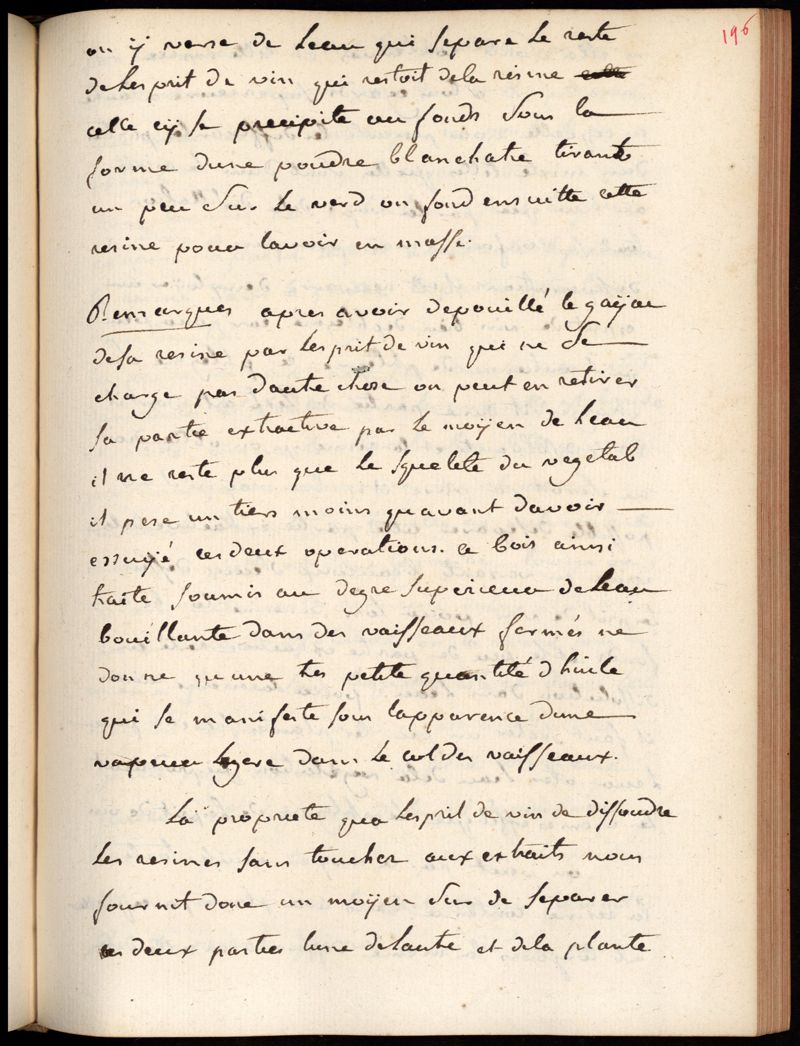 196
on ÿ verse de Leau qui separe Le reste
de Lesprit de vin qui restoit dela resine celle
celle cÿ se precipite au fonds sous la
forme dune poudre blanchatre tirant
un peu sur Le verd on fond ensuitte cette
resine pour lavoir en masse.
Remarques apres avoir depouillé le gaÿac
desa resine par Lesprit de vin qui ne se
charge pas dautre chose on peut en retirer
sa partie extractive par le moÿen de Leau
il ne reste plus que Le squelete du vegetal
il pese un tiers moins quavant davoir
essuÿé ces deux operations. ce bois ainsi
traite soumis au degre superieur de Leau
bouillante dans des vaisseaux fermés ne
donne quune tres petite quantité dhuile
qui se manifeste sous lapparence dune
vapeur legere dans Le col des vaisseaux.
La propriete qua Lesprit de vin de dissoudre
Les resines sans toucher aux extraits nous
fournit donc un moÿen sur de separer
ces deux parties lune de Lautre et dela plante